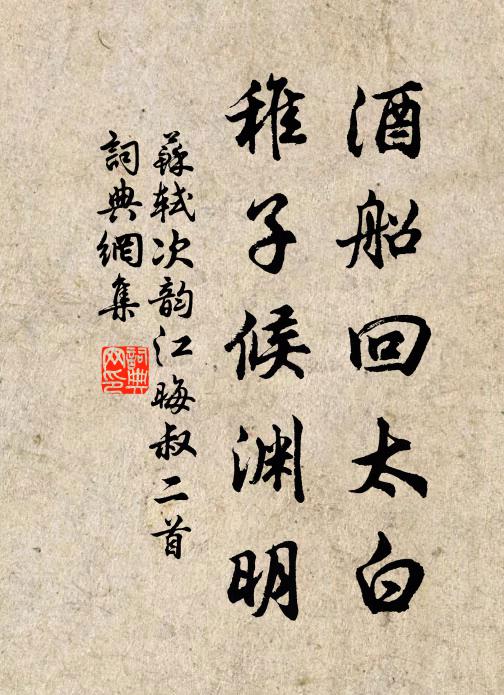 酒船回太白
稚子候渊明
蘇軾次韵江晦叔二首
詞典網集
詞典网印